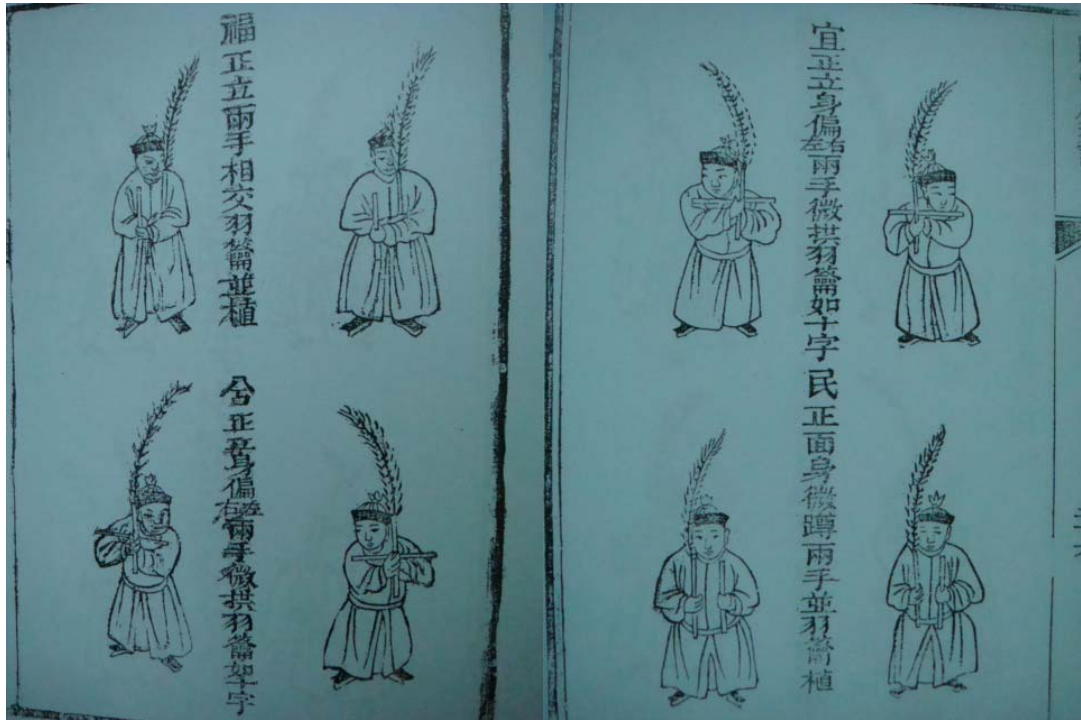 宜正立身偏右左兩手微拱羽籥如十字
民正面身微蹲兩手並羽籥植
福正立兩手相交羽籥並植
正立身偏左右兩手微拱羽籥如十字